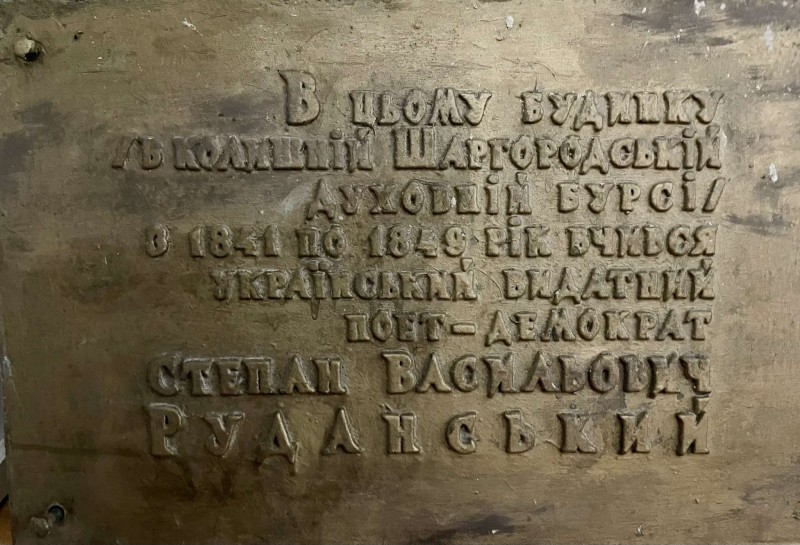 В цьому будинку
/в колишній Шаргородській
духовній бурсі/
з 1841 по 1849 рік вчився
український видатний
поет-демократ
Степан Васильович
Руданський